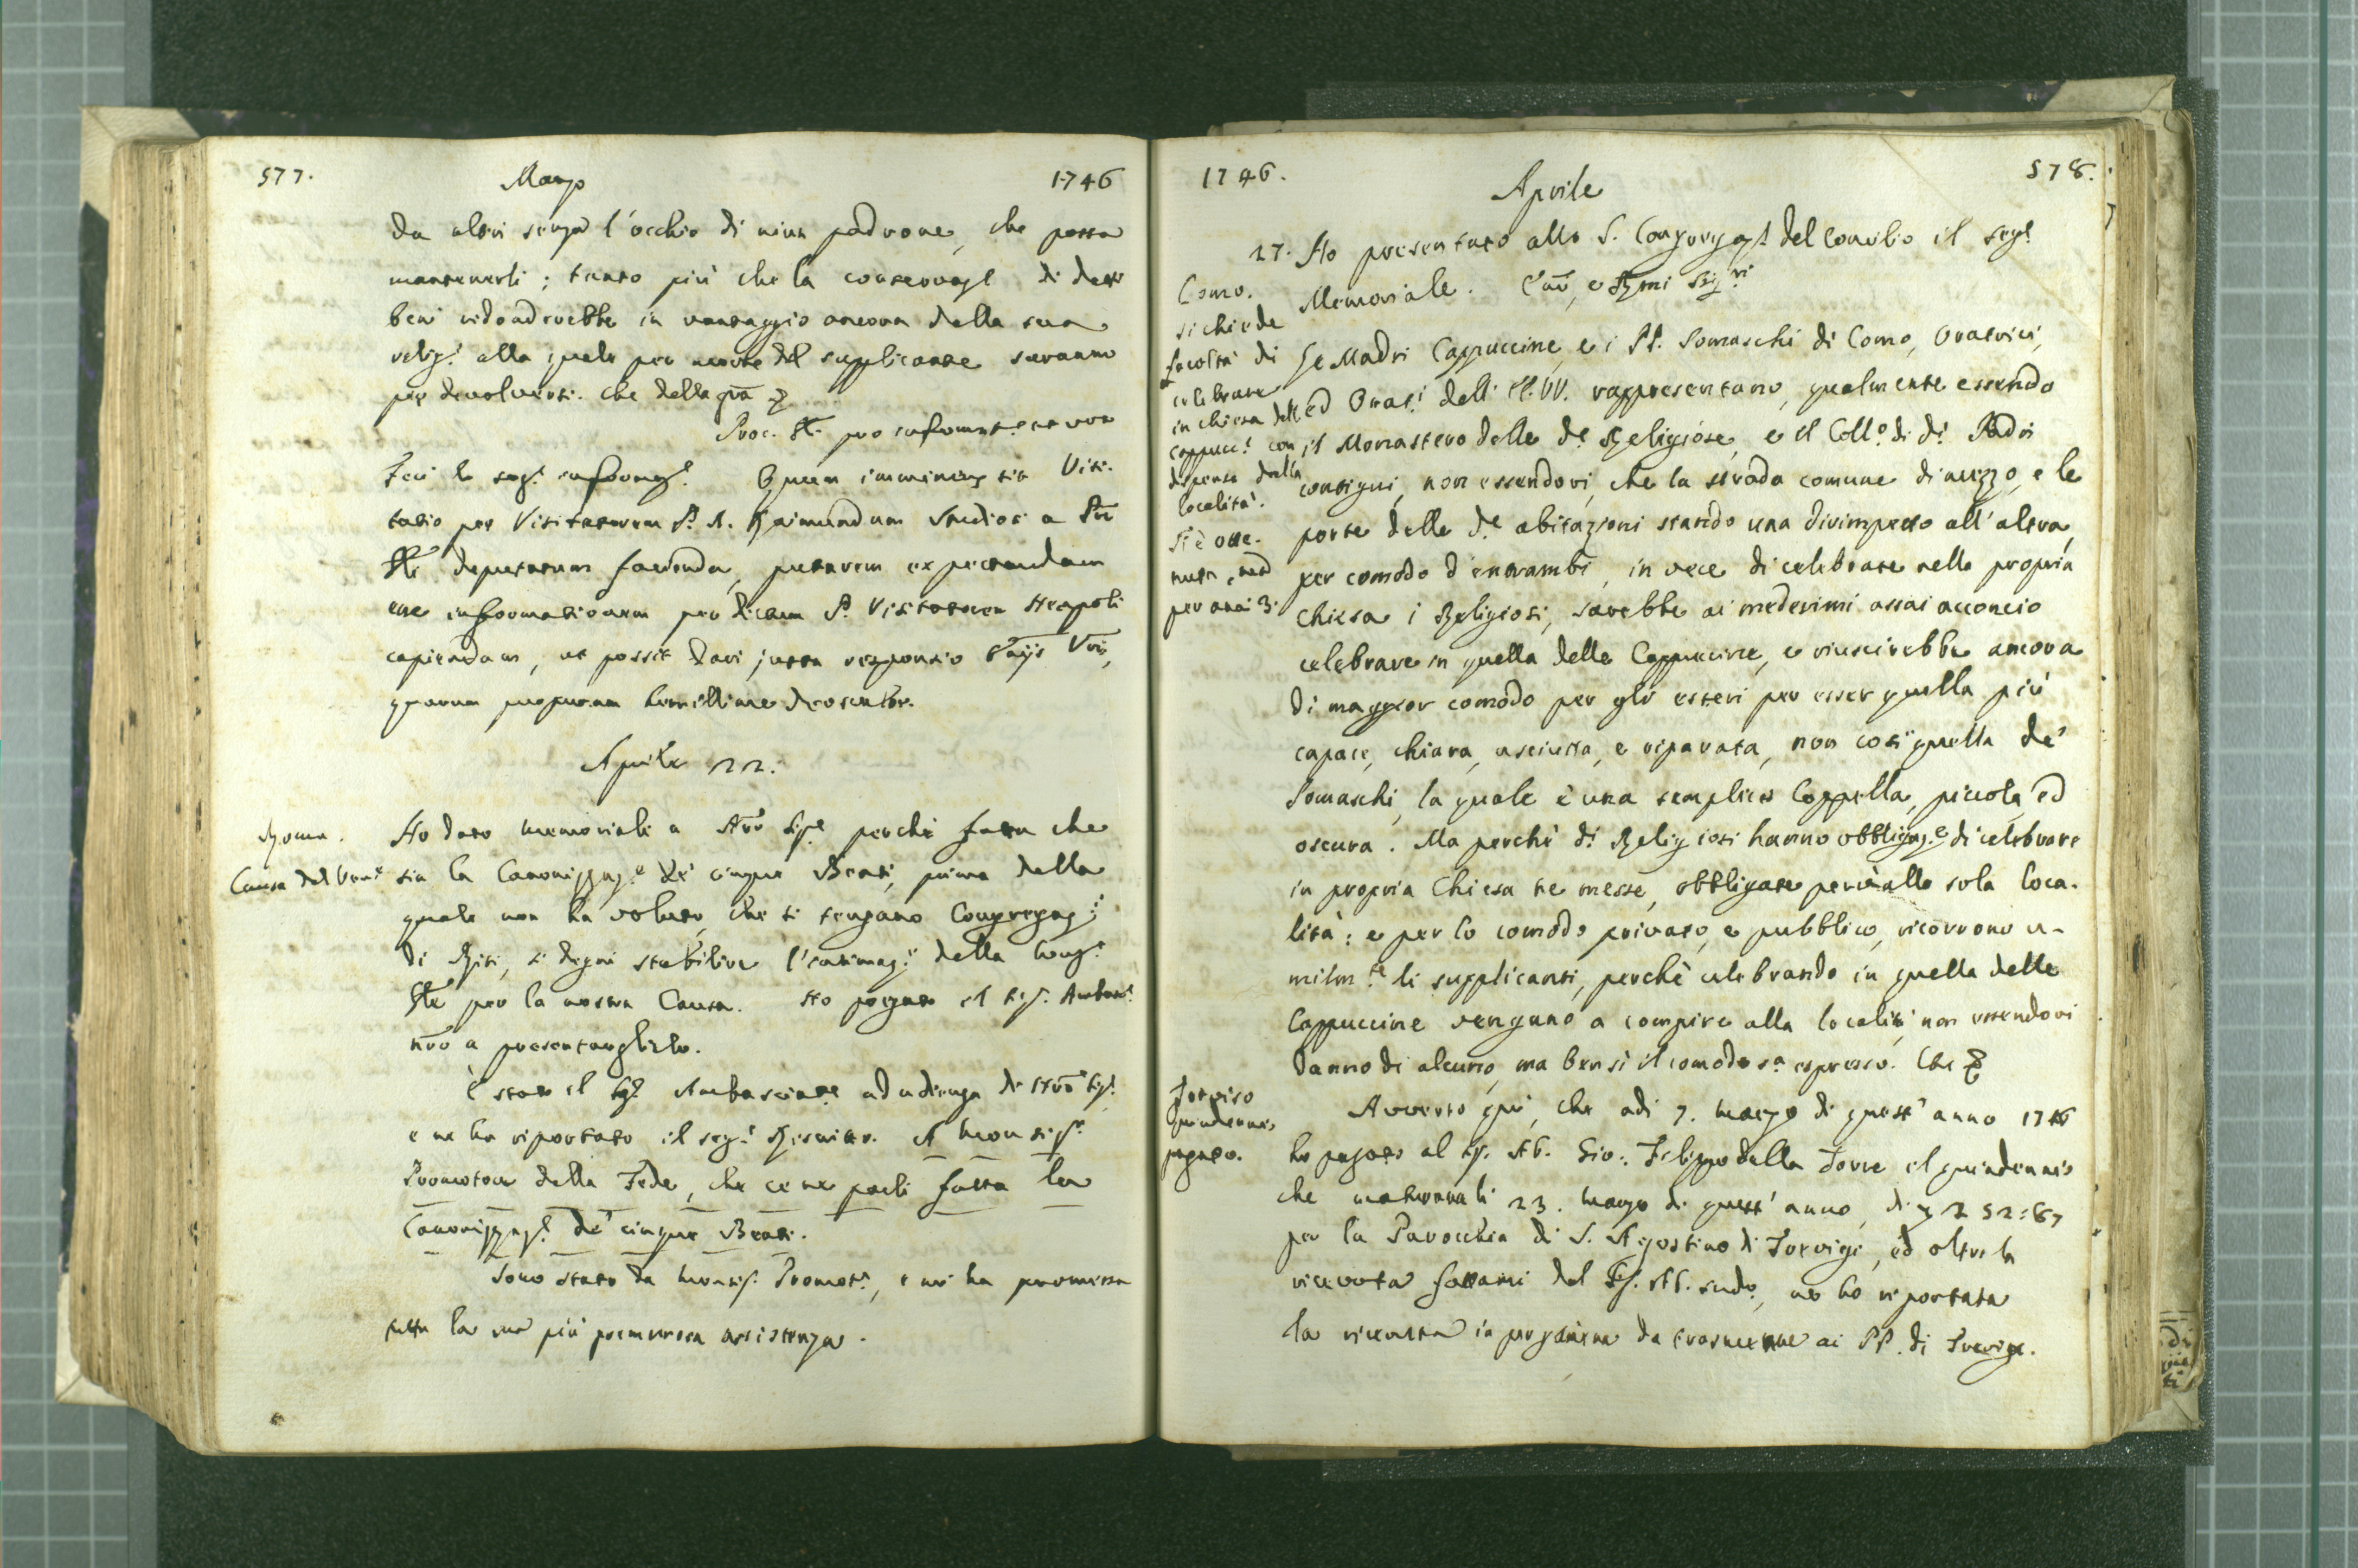 577. Marzo 1746
da altri senza l'occhio di niun padrone, che possa
mantenerli; tanto più che la conservaz.e di detti
beni ridondrebbe in vantaggio ancora della sua
relig.e alla quale per morte del supplicante saranno
per devolversi. Che della gra̅
Proc. Gle. pro informat.e et voto
Feci la seg.e informaz.e Quum imminens sit Visi-
tatio per Visitatorem P. D. Raimundum Studiosi a Pre
Gle deputatum facienda, putarem expectandam
esse informationem per dictum P. Visitatorem Neapoli
capiendam, ut possit dari justa responsio
quarum purpuram humillime deosculor.
Aprile 22.
Roma.
Causa del Ven.e
Ho dato memoriale a Nro Sig.e perchè fatta che
sia la Canonizzaz.e de' cinque Beati, prima della
quale non ha voluto, che si tengano Congregaz.i
di Riti, si degni stabilire l'intimaz.e della Cong.e
Gle per la nostra Causa. Ho pregato il Sig. Ambas.e
nro a presentarglielo.
È stato il Sig.e Ambasciat.e ad udienza di Nro Sig.e
e ne ha riportato il seg.e Rescritto. A Monsig.e
Promotore della Fede, che ce ne parli fatta la
Canonizzaz.e de' cinque Beati.
Sono stato da Monsig. Promot.e, e mi ha promessa
tutta la sua più premurosa assistenza.
1746. Aprile 578.
27. Ho presentato alla S. Congregaz.e del Concilio il seg.e
Memoriale. Emi, e Rmi Sig.ri
Como.
si chiede
facoltà di
celebrare
in chiesa delle
Cappucc.e con
dispensa dalla
località.
Si è otte-
nuta,
per anni 3.
Le Madri Cappuccine, e i PP. Somaschi di Como, Oratrici,
ed Orat.i dell'EE. VV. rappresentano, qualmente essendo
il Monastero delle d.e Religiose, e il Coll.o di d.i Padri
contigui, non essendovi, che la strada comune di mezzo, e le
porte delle d.e abitazioni stando una dirimpetto all'altra,
per comodo d'entrambi, in vece di celebrare nella propria
Chiesa i Religiosi, sarebbe ai medesimi assai acconcio
celebrare in quella delle Cappuccine, e riuscirebbe ancora
di maggior comodo per gli esteri per esser quella più
capace, chiara, asciutta, e riparata, non così quella de'
Somaschi, la quale è una semplice Cappella, piccola, ed
oscura. Ma perchè d.i Religiosi hanno obbligaz.e di celebrare
in propria Chiesa le messe, obbligate perciò alla sola loca-
lità: e per lo comodo privato, e pubblico, ricorrono u-
milm.te li supplicanti, perchè celebrando in quella delle
Cappuccine vengano a compire alla località, non essendovi
danno di alcuno, ma bensì il comodo s.a espresso. Che
Treviso
Quindennio
pagato.
Avverto qui, che adi 7. marzo di quest'anno 1746
ho pagato al Sig. Ab. Gio: Filippo della Torre il quindennio
che maturava li 23. marzo di quest'anno, di 52:67
per la Parocchia di S. Agostino di Trevigi, ed oltre la
ricevuta fattami dal Sig. Ab. sudo, ne ho riportata
la ricevuta in pergamena da trasmettere ai PP. di Trevigi.